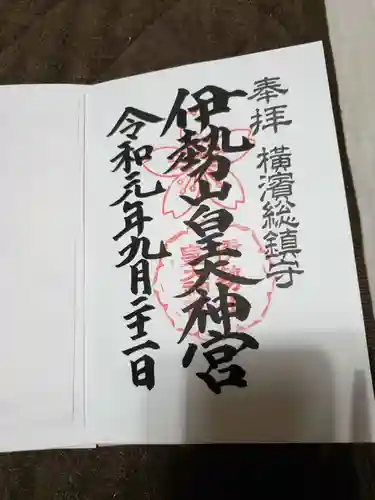 奉拝 横濱総鎮守
伊勢山皇大神宮
令和元年九月二十二日